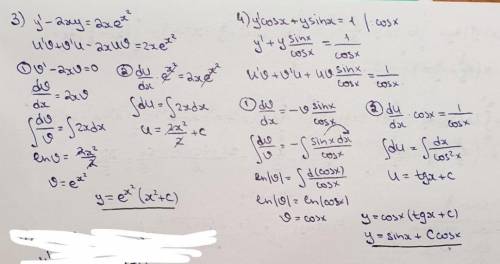 3) y' - 2xy = 2xe^{x^2}
u'v + v'u - 2xuv = 2xe^{x^2}
① v' - 2xv = 0
dv/dx = 2xv
∫ dv/v = ∫ 2xdx
ln v = 2x^2/2
v = e^{x^2}
② du/dx · e^{x^2} = 2xe^{x^2}
∫ du = ∫ 2xdx
u = 2x^2/2 + C
y = e^{x^2} (x^2 + C)
4) y'cosx + ysinx = 1 | : cosx
y' + y sinx/cosx = 1/cosx
u'v + v'u + uv sinx/cosx = 1/cosx
① dv/dx = -v sinx/cosx
∫ dv/v = -∫ sinx dx/cosx
ln|v| = ∫ d(cosx)/cosx
ln|v| = ln(cosx)
v = cosx
② du/dx · cosx = 1/cosx
∫ du = ∫ dx/cos^2x
u = tgx + C
y = cosx (tgx + C)
y = sinx + C cosx